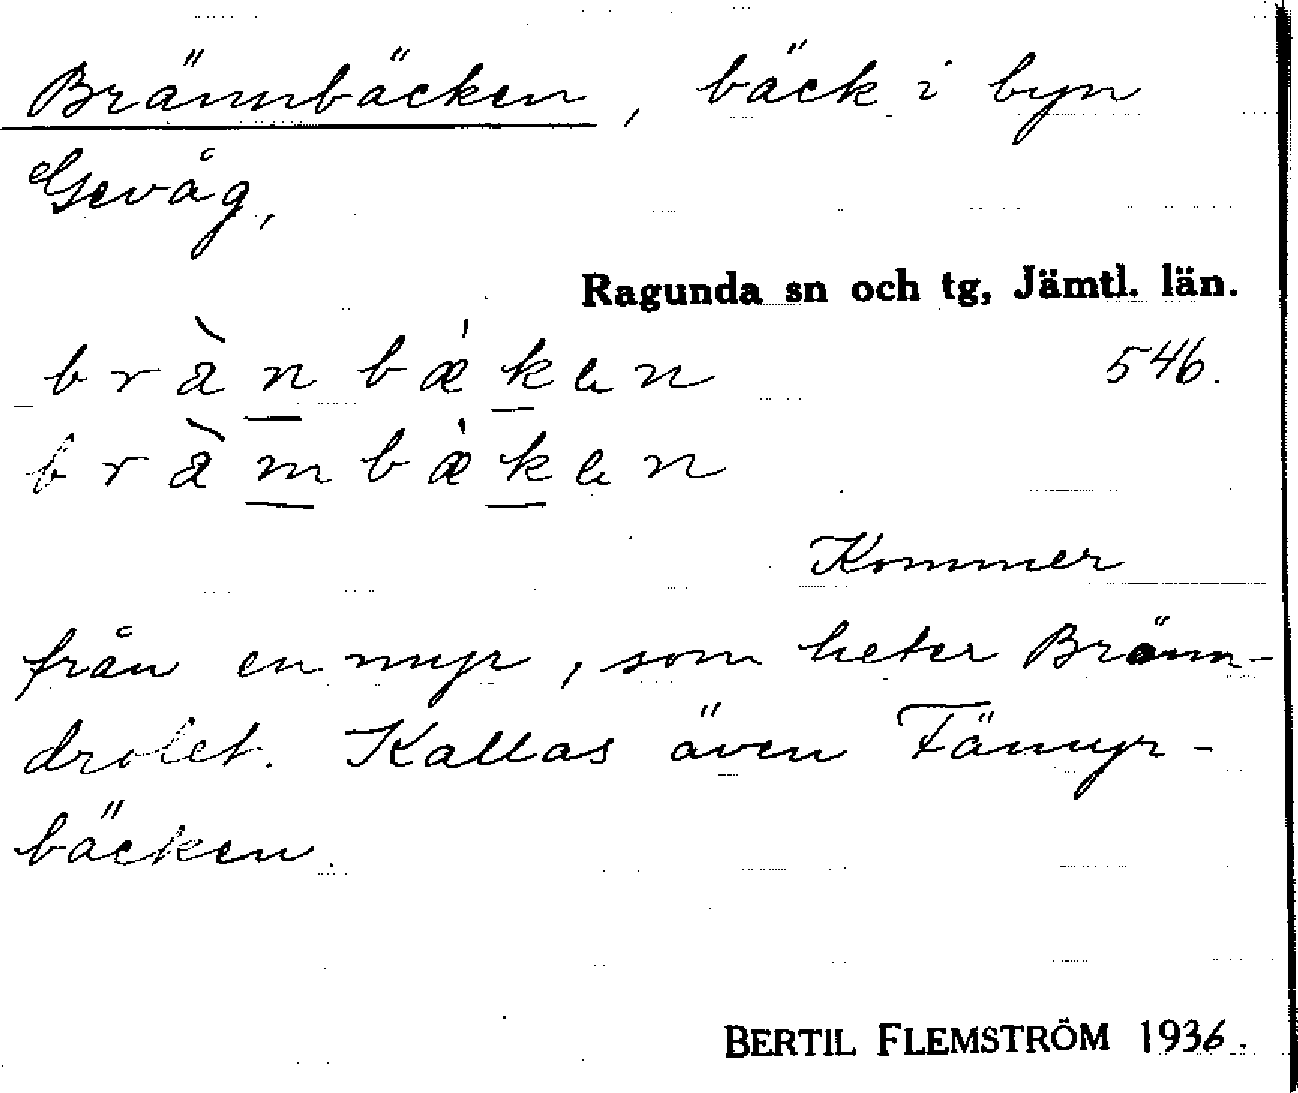 Brännbäcken, bäck i byn
Gevåg,
Ragunda sn och tg, Jämtl. län.
bràn bǽken 546.
bràm bǽken
Kommer
från en myr, som heter Bränn-
drolet. Kallas även Fämyr-
bäcken.
BERTIL FLEMSTRÖM 1936.